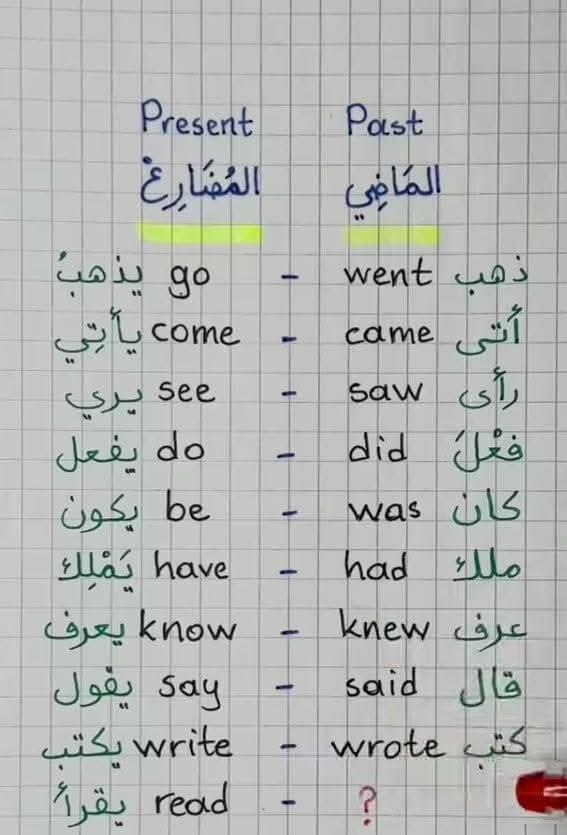 Present Past
المُضَارِعْ المَاضِي
يذهبُ go - went ذهب
يأتِي come - came أَتى
يري see - saw رأى
يفعل do - did فعْلَ
يكون be - was كان
يَمْلِك have - had ملك
يعرف know - knew عرف
يقول say - said قال
يكتب write - wrote كتب
يقرأ read - ?